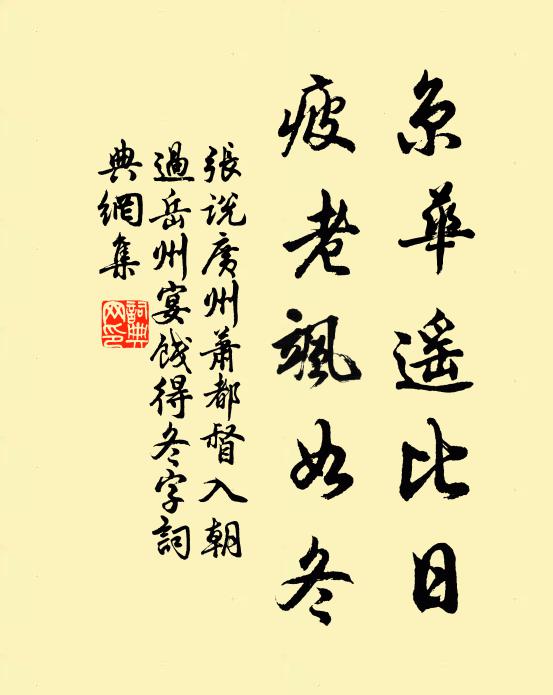 京華遥比日
疲老颯如冬
張説廣州蕭都督入朝
過岳州宴餞得冬字詞
典網集
詞典
网印